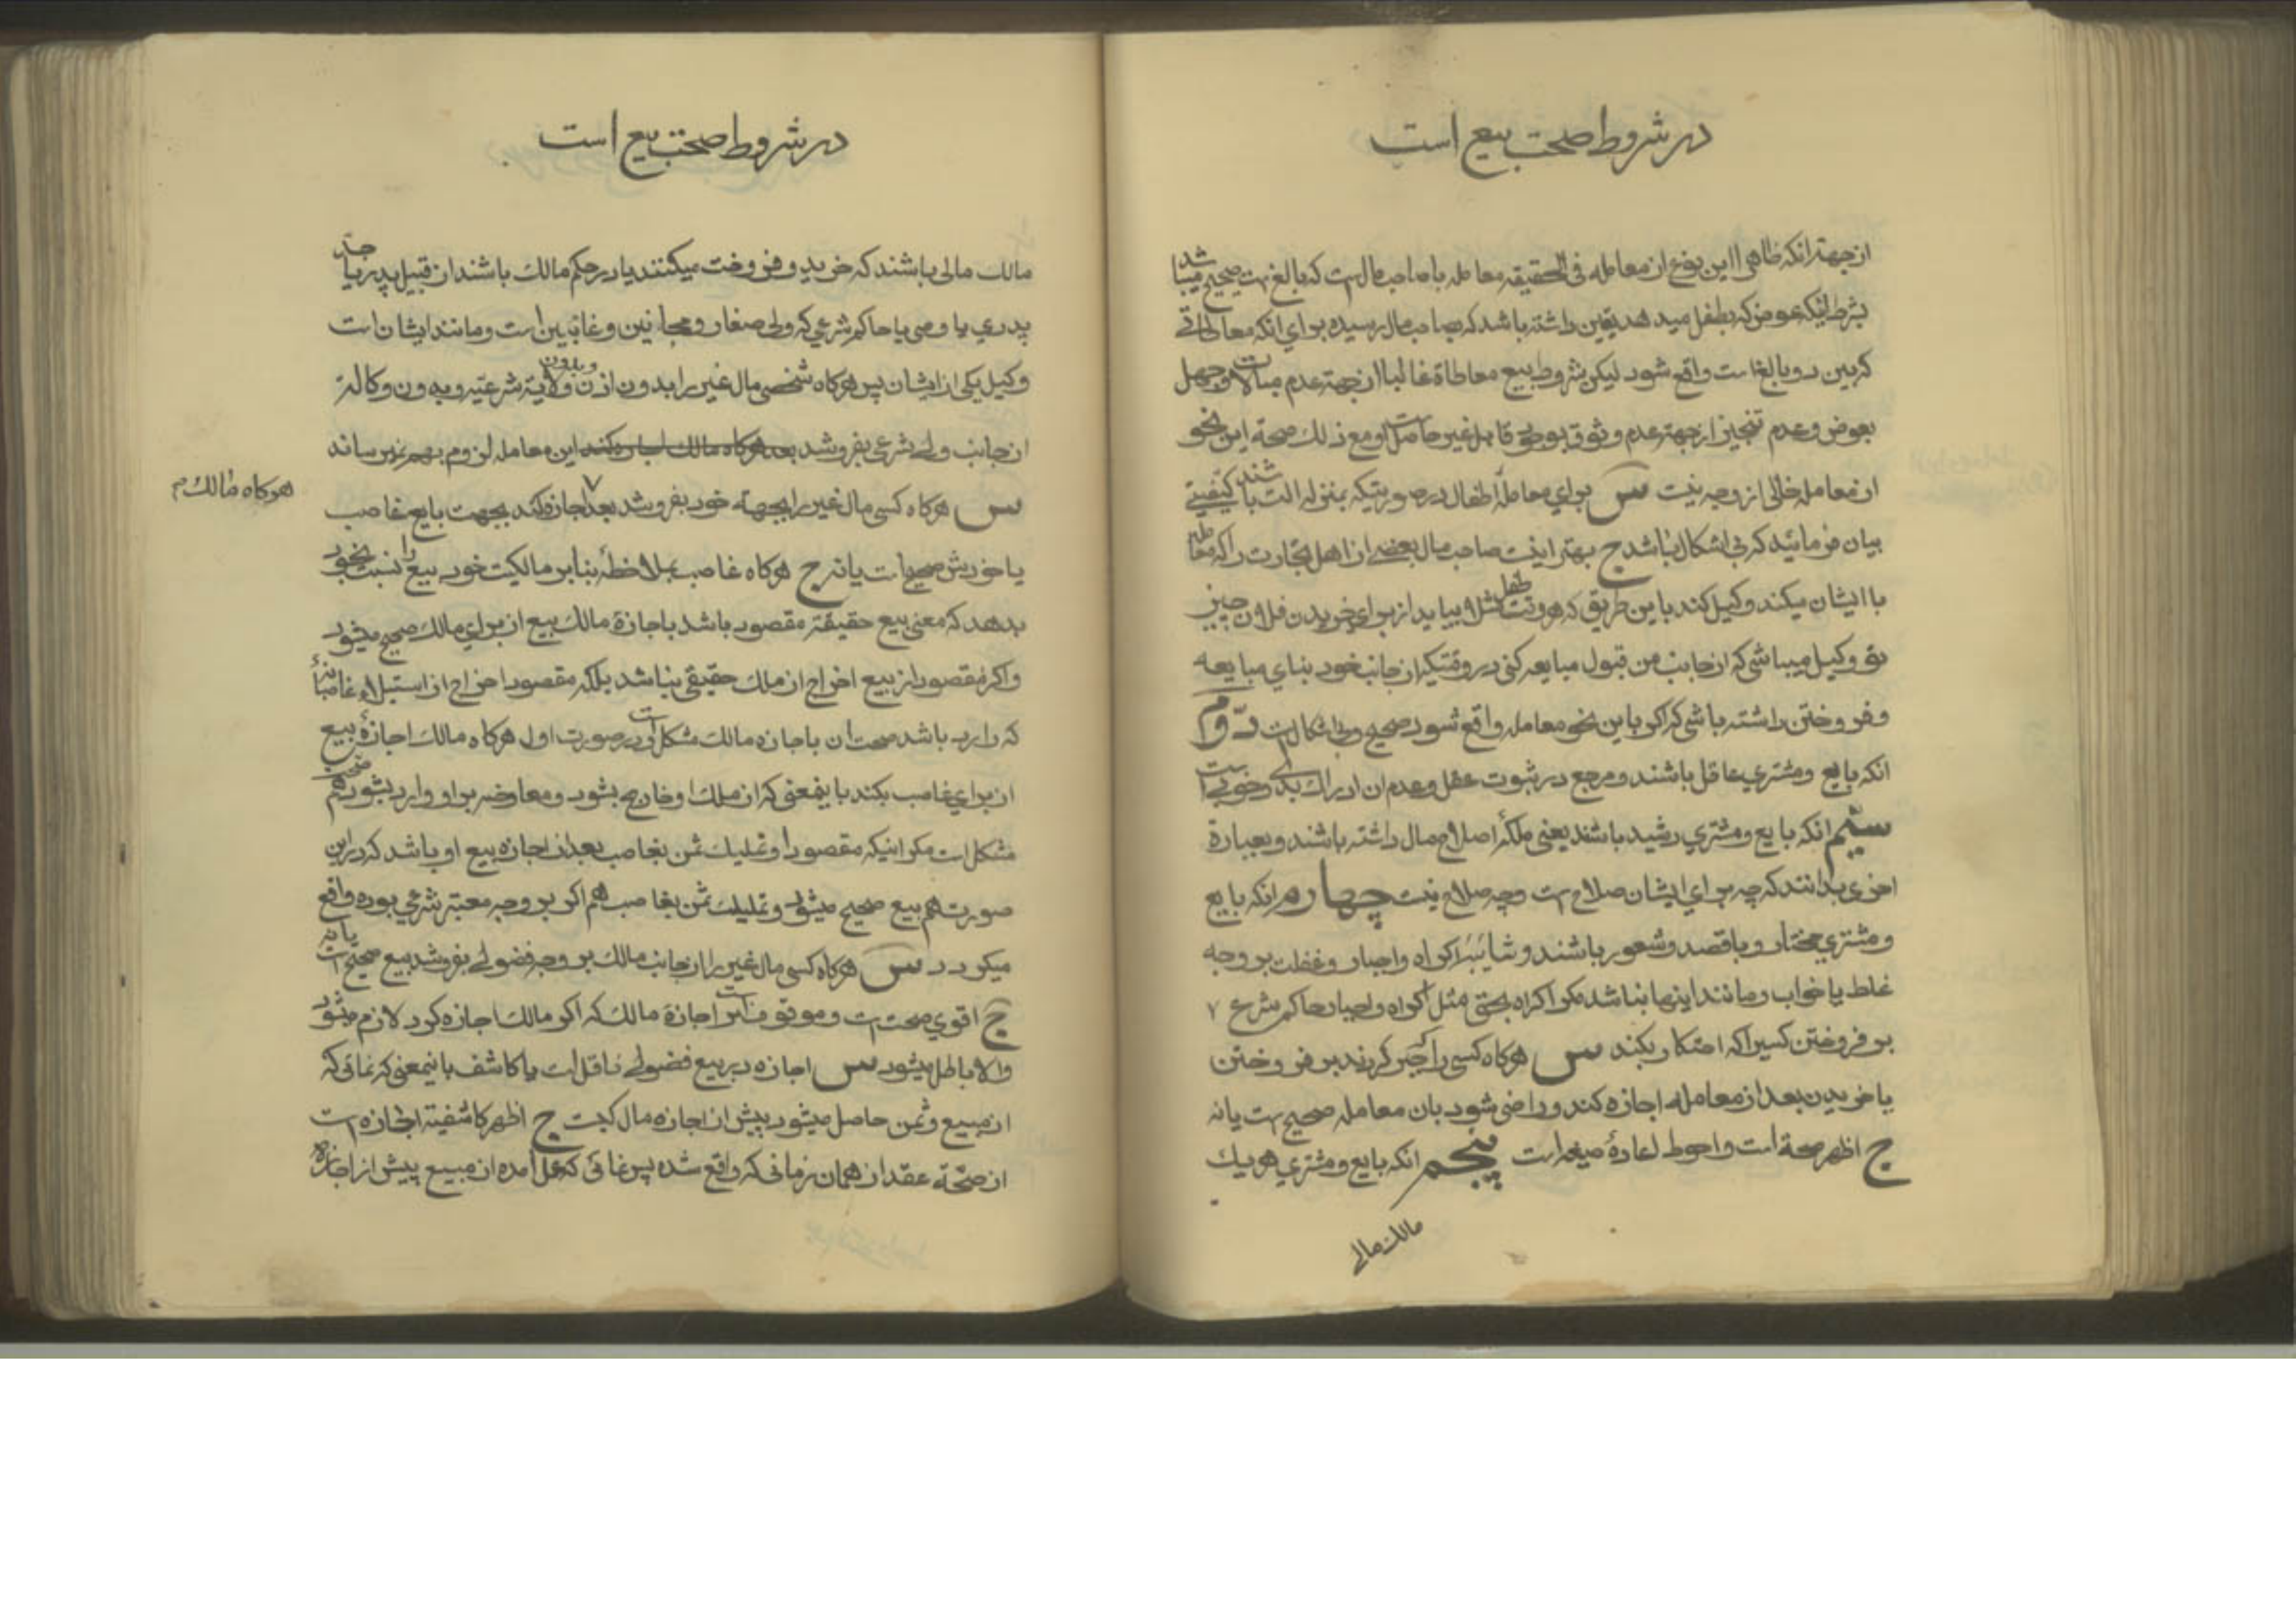 در شروط صحت بیع است
از جهة انکه ظاهرا این نوع از معامله فی الحقیقه معامله با صاحب مال است که بالغ است صحیح میباشد
بشرط اینکه عوض که بطفل میدهد یقین داشته باشد که بصاحب مال رسیده برای انکه معاطاتی
که بین دو بالغ است واقع شود لیکن شروط بیع معاطاة غالبا از جهة عدم مبالات و جهل
بعوض و عدم تنجیز از جهة عدم وثوق بوجه قابل غیر حاصل است و مع ذلک صحة این نحو
از معامله خالی از وجه نیست س برای معاملهٔ اطفال در صورتیکه بمنزله الت باشند کیفیتی
بیان فرمائید که بی اشکال باشد ج بهتر اینست صاحب مال بعضی از اهل تجارت را که معامله
با ایشان میکند وکیل کند باین طریق که هر وقت طفل مثلا بیاید از برای خریدن فلان چیز
تو وکیل میباشی که از جانب من قبول مبایعه کنی در وقتیکه از جانب خود بنای مبایعه
و فروختن داشته باشی که اکر باین نحو معامله واقع شود صحیح و بی اشکال است دوم
انکه بایع و مشتری عاقل باشند و مرجع در ثبوت عقل و عدم ان ادراک بدی و خوبی است
سیّم انکه بایع و مشتری رشید باشند یعنی ملکهٔ اصلاح مال داشته باشند و بعبارة
اخری بدانند که چه برای ایشان صلاح است و چه صلاح نیست چهارم انکه بایع
و مشتری مختار و با قصد و شعور باشند و شائبهٔ اکراه و اجبار و غفلت بر وجه
غلط یا خواب و مانند اینها نباشد مکر اکراه بحق مثل اکراه و اجبار حاکم شرع ٧
بر فروختن کسیرا که احتکار بکند س هرکاه کسی را جبر کردند بر فروختن
یا خریدن بعد از معامله اجازه کند و راضی شود بان معامله صحیح است یا نه
ج اظهر صحة است و احوط اعادهٔ صیغه است پنجم انکه بایع و مشتری هر یک
مالک مالی
در شروط صحت بیع است
مالک مالی باشند که خرید و فروخت میکنند یا در حکم مالک باشند از قبیل پدر یا جد
پدری یا وصی یا حاکم شرعی که ولی صغار و مجانین و غائبین است و مانند ایشان است
وکیل یکی از ایشان پس هرکاه شخصی مال غیر را بدون اذن و بدون ولایة شرعیّه و بدون وکالة
از جانب ولی شرعی بفروشد بعد هرکاه مالک اجازه کند این معامله لزوم بهم نمیرساند
س هرکاه کسی مال غیر را بجهة خود بفروشد بعد ٧ اجازه کند بجهت بایع غاصب
هرکاه مالک م
یا خودش صحیح است یا نه ج هرکاه غاصب بملاحظهٔ بنابر مالکیت خود بیع را نسبت بخود
بدهد که معنی بیع حقیقة مقصود باشد باجازة مالک بیع از برای مالک صحیح میشود
و اکر مقصود از بیع اخراج از ملک حقیقی نباشد بلکه مقصود اخراج از استیلاء غاصبانهٔ
که دارد باشد صحت ان باجازه مالک مشکل است و در صورت اول هرکاه مالک اجازهٔ بیع
از برای غاصب بکند باینمعنی که از ملک او خارج بشود و معاوضه بر او وارد بشود صحت هم
مشکل است مکر اینکه مقصود او تملیک ثمن بغاصب بعد از اجازه بیع او باشد که در این
صورت هم بیع صحیح میشود و تملیک ثمن بغاصب هم اکر بر وجه معتبر شرعی بوده واقع
میکردد س هرکاه کسی مال غیر را از جانب مالک بر وجه فضولی بفروشد بیع صحیح است یا نه
ج اقوی صحت است و موقوف است بر اجازة مالک که اکر مالک اجازه کرد لازم میشود
والا باطل میشود س اجازه در بیع فضولی ناقل است یا کاشف باینمعنی که نمائی که
از مبیع و ثمن حاصل میشود پیش از اجازه مال کیست ج اظهر کاشفیة اجازه است
از صحّة عقد از همان زمانی که واقع شده پس نمائی که بعمل امده از مبیع پیش از اجازه